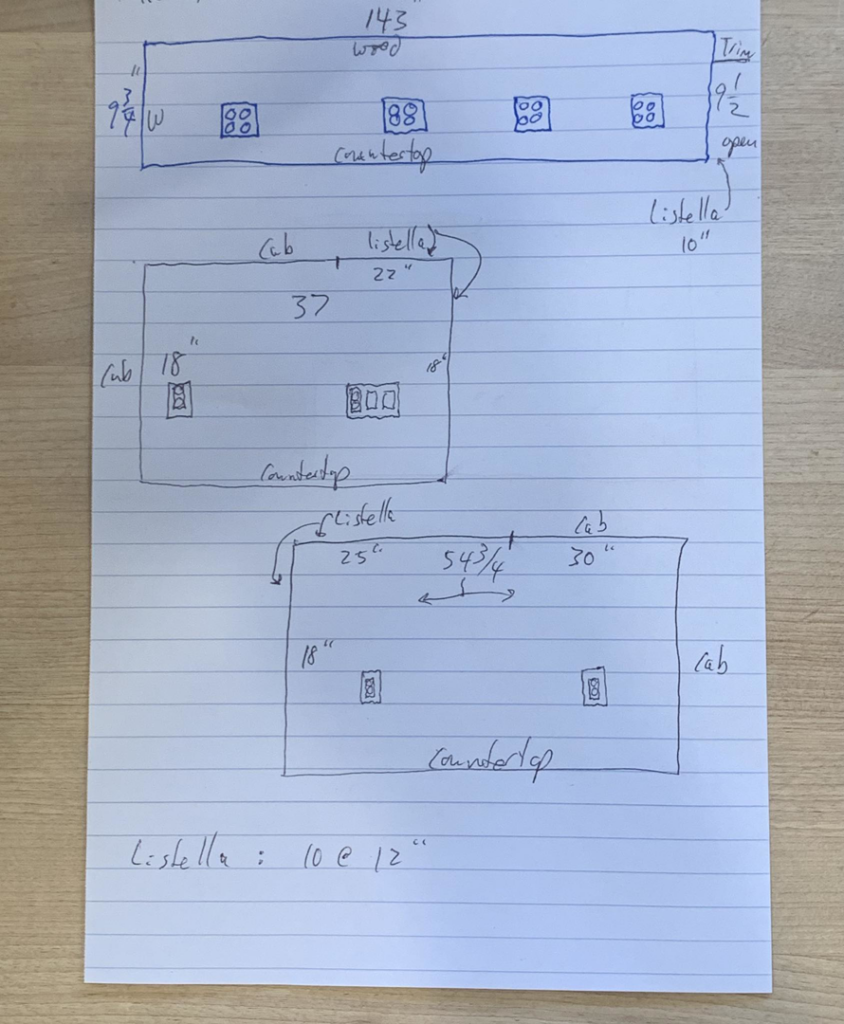 143"
wood
Trim
9 3/4"
W
9 1/2
Countertop
open
Listella
10"
Cab
listella
22"
37
Cab
18"
18"
Countertop
Listella
Cab
25"
54 3/4
30"
18"
Cab
Countertop
Listella : 10 @ 12"